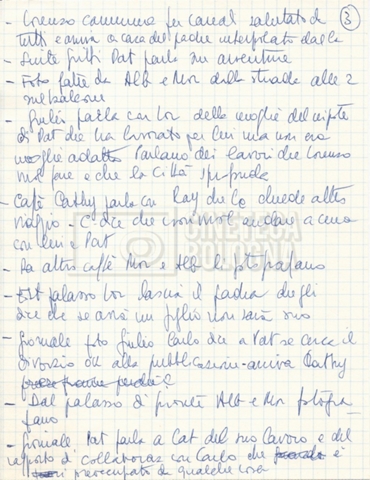 3
- Lorenzo cammina per canali salutato da
tutti e arriva a casa del padre interpolato dalla
- Suite Gritti Pat parla su avventure
- Foto fatte da Alb e Mor dalla strada alle 2
sul balcone
- Giulio parla con Lor della moglie del nipote
di Pat che ha lavorato per lui ma non era
moglie adatta Parlano dei lavori che Lorenzo
può fare e che la città sprofonda
- Café Cathy parla con Ray che le chiede altro
viaggio - C. dice che non può andare a cena
con lui e Pat
- Da altro caffè Mor e Alb li fotografano
- Est palazzo Lor lascia il padre dicegli
che se avrà un figlio non sarà suo
- Giornale foto Giulio Carlo dice a Pat se cerca il
divorzio o alla pubblicazione - arriva Cathy
- Dal palazzo di fronte Alb e Mor fotogra
fano
- Giornale Pat parla a Cat del suo lavoro e del
rapporto di collaboraz con Carlo che è
preoccupato da qualche cosa
CINETECA
BOLOGNA